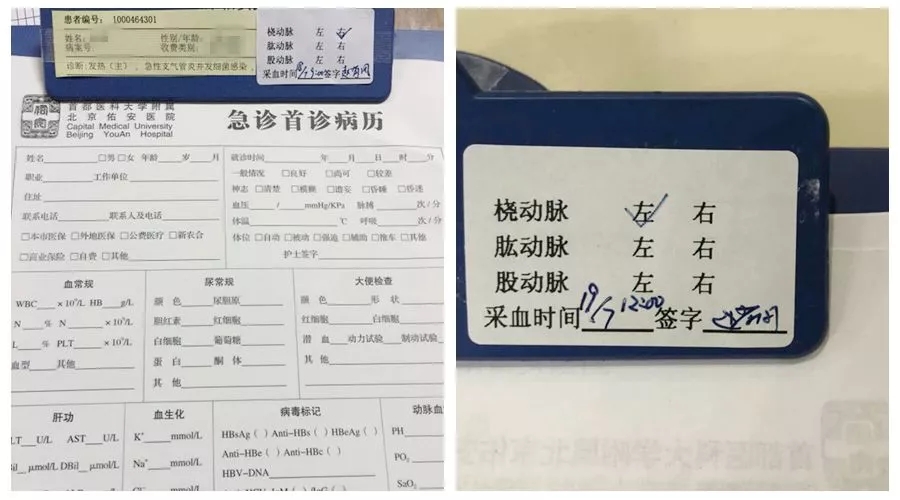 患者编号： 1000464301
姓名： 性别/年龄：
病案号： 收费类别：
诊断：发热（主）, 急性支气管炎并发细菌感染，
桡动脉 左 右
肱动脉 左 右
股动脉 左 右
采血时间 签字
首都医科大学附属
北京佑安医院
Capital Medical University
Beijing YouAn Hospital
急诊首诊病历
姓名 □男 □女 年龄 岁 月
职业 工作单位
住址
联系电话 联系人及电话
□本市医保 □外地医保 □公费医疗 □新农合
□商业保险 □自费 □其他
就诊时间 年 月 日 时 分
一般情况 □良好 □尚可 □较差
神志 □清楚 □模糊 □谵妄 □昏睡 □昏迷
血压 / mmHg/KPa 脉搏 次/分
体温 ℃ 呼吸 次/分
体位 □自动 □被动 □强迫 □辅助 □推车 □其他
护士签字
血常规
WBC × 10⁹/L HB g/L
N % N × 10⁹/L
L % PLT × 10⁹/L
血型 其他
尿常规
颜色 尿胆原
胆红素 红细胞
白细胞 葡萄糖
蛋白 酮体
其他
大便检查
颜色 形状
红细胞 白细胞
潜血 动力试验 制动试验
其他
肝功
LT U/L AST U/L
Bil μmol/L DBil μmol/L
血生化
K⁺ mmol/L
Na⁺ mmol/L
Cl⁻ mmol/L
病毒标记
HBsAg ( ) Anti-HBs ( ) HBeAg ( )
Anti-HBe ( ) Anti-HBc ( )
HBV-DNA
动脉血
PH
PO₂
SaO₂
桡动脉 左 右
肱动脉 左 右
股动脉 左 右
采血时间 19/7 12:00 签字